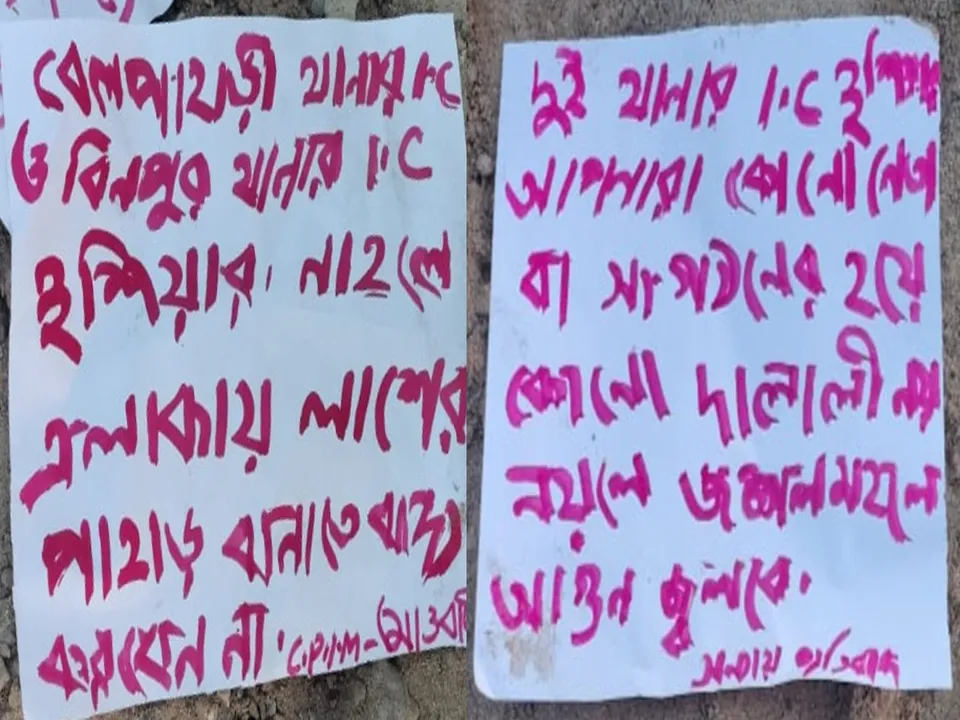 বেলপাহাড়ী থানার I.C
ও বিনপুর থানার I.C
হুশিয়ার। নাহলে
এলাকায় লাশের
পাহাড় বানাতে বাধ্য
করবেন না। C.P.I.M-মাওবাদী
দুই থানার I.C হুশিয়ার
আপনারা কোনো নেতা
বা সংগঠনের হয়ে
কোনো দালালী নয়
নয়লে জঙ্গলমহলে
আগুন জ্বলবে।